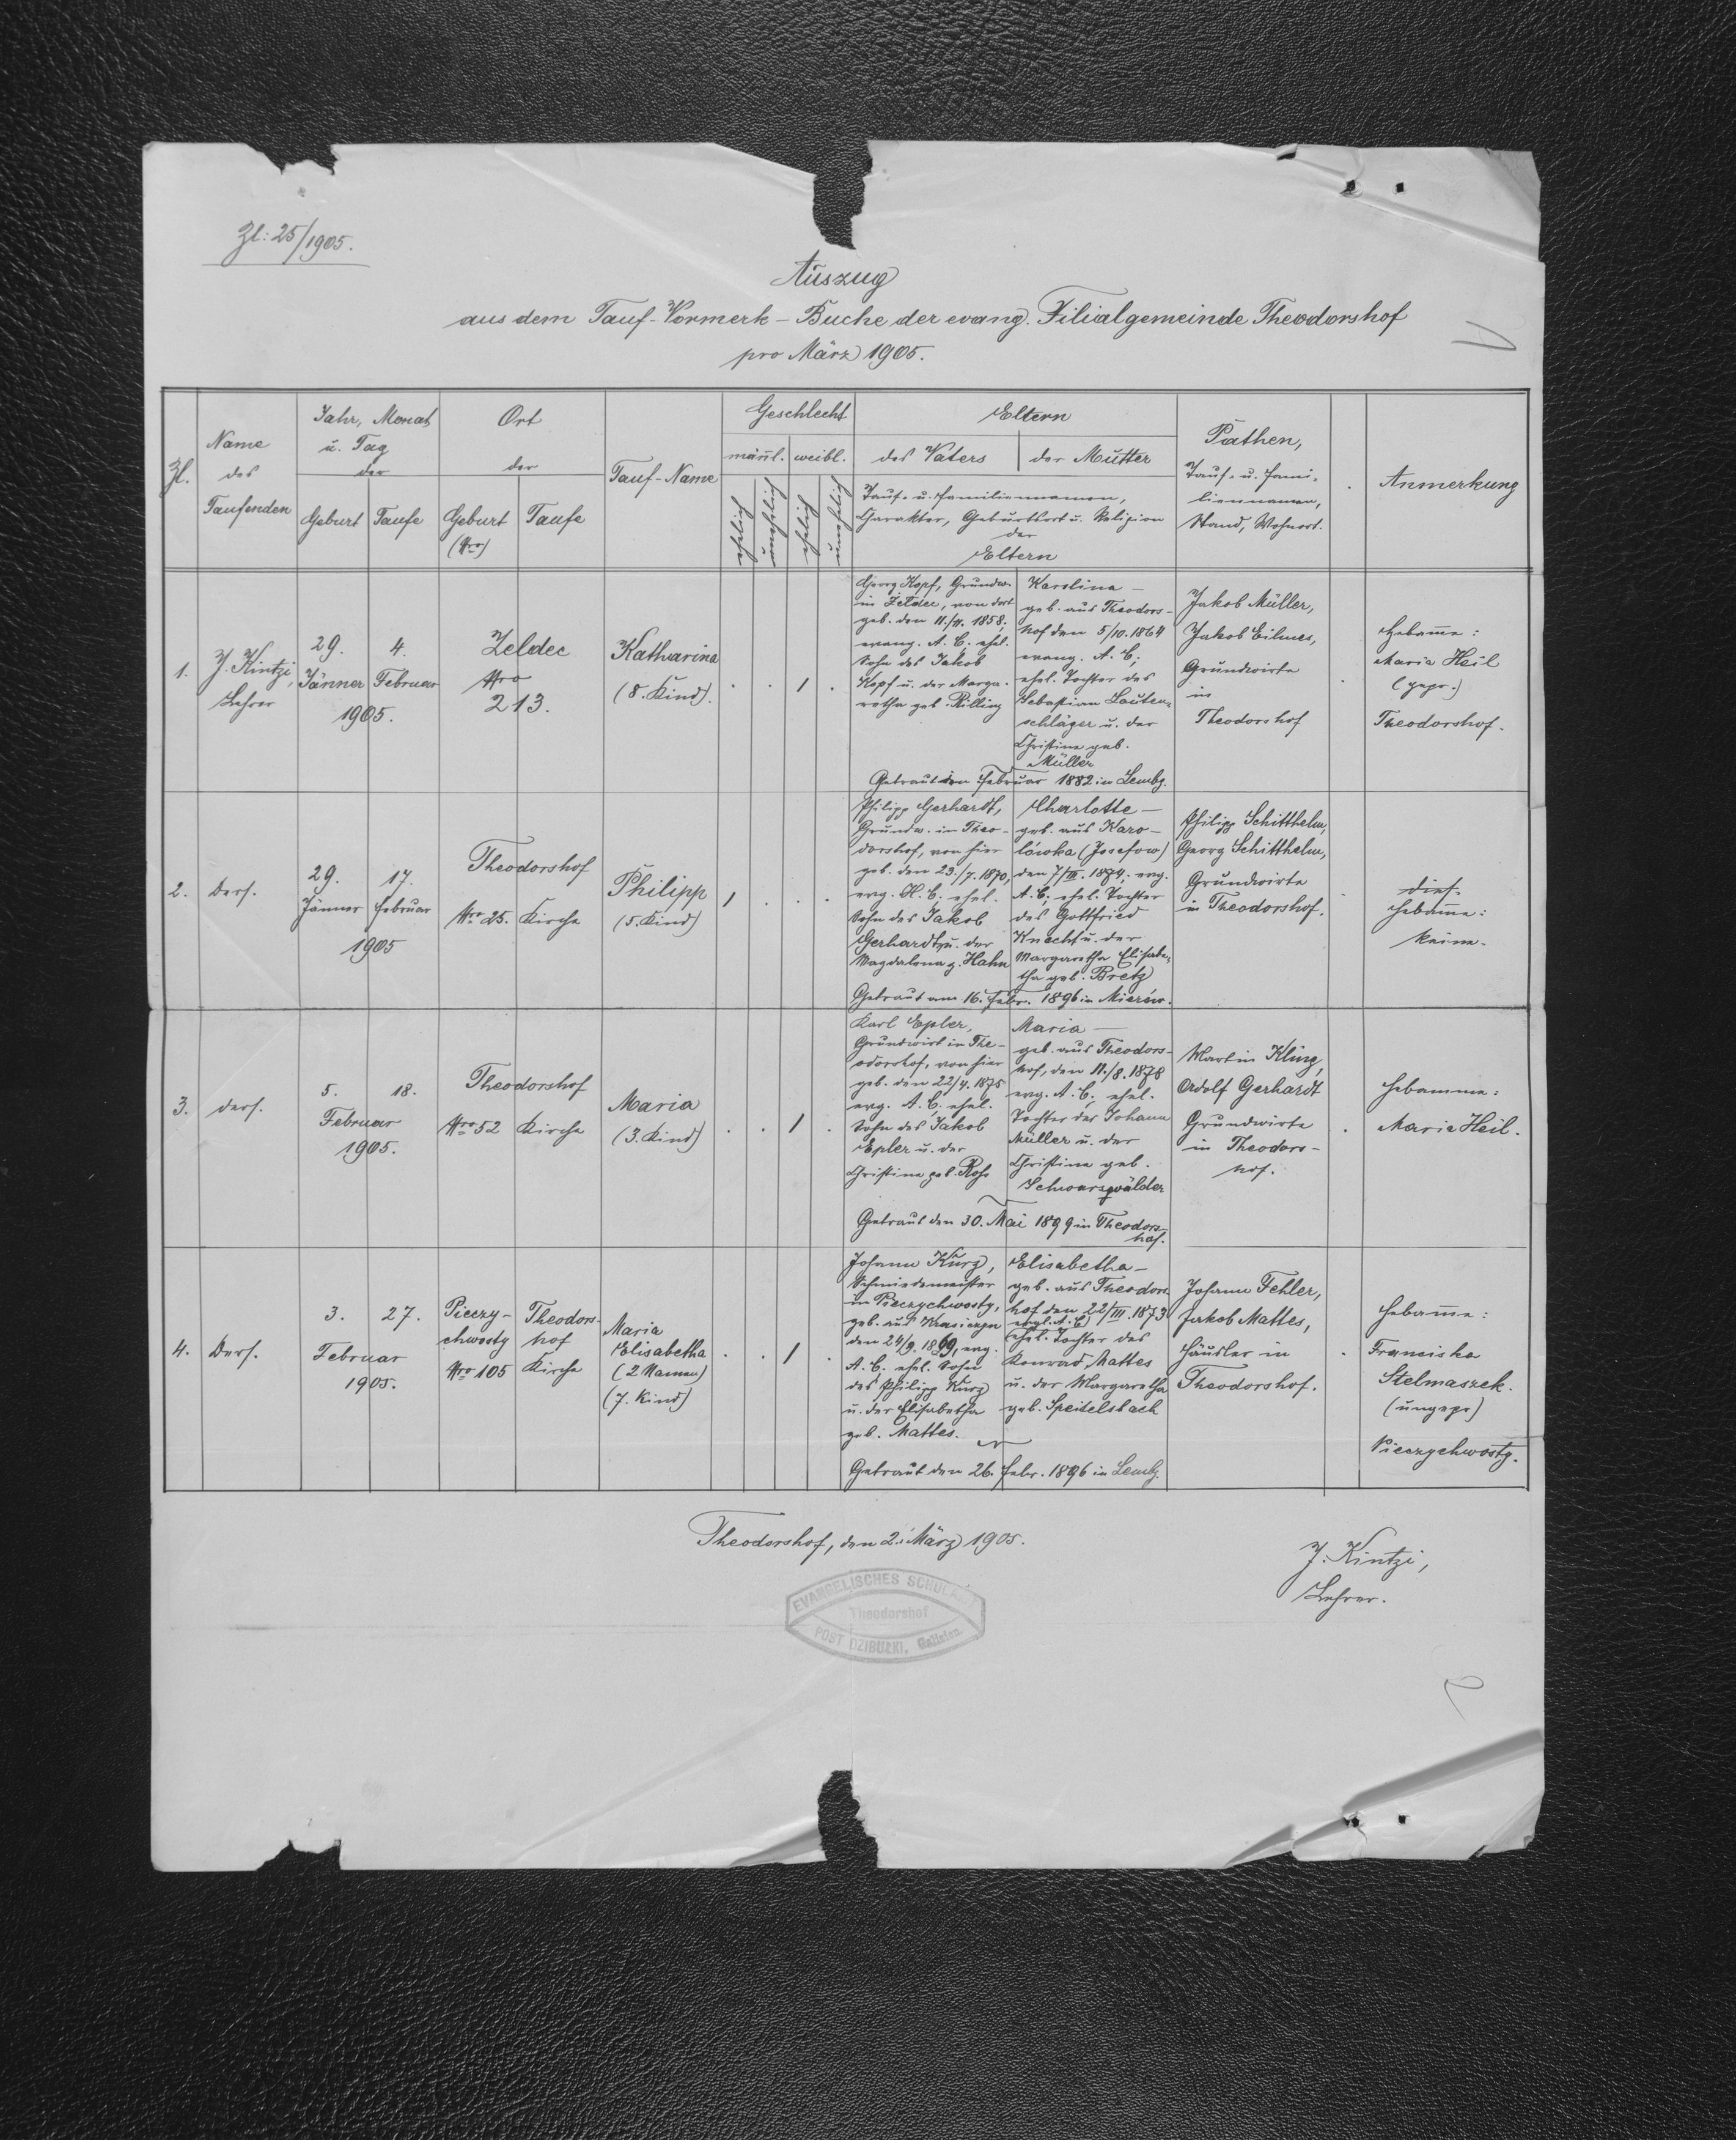 Zl: 25/1905.
Auszug
aus dem Tauf-Vormerk-Buche der evang. Filialgemeinde Theodorshof
pro März 1905.
Zl.
Name
des
Taufenden
Jahr, Monat
u. Tag
der
Geburt
Taufe
Ort
der
Geburt
(Nro)
Taufe
Tauf-Name
Geschlecht
männl.
weibl.
ehelich
unehelich
ehelich
unehelich
Eltern
des Vaters
der Mutter
Tauf- u. Familiennamen,
Charakter, Geburtsort u. Religion
der
Eltern
Pathen,
Tauf- u. Fami-
liennamen,
Stand, Wohnort.
Anmerkung
1.
J. Kintzi,
Lehrer
29.
4.
Jänner
Februar
1905.
Zeldec
Nro
213.
Katharina
(8. Kind).
1
Georg Kopf, Grundw.
in Zeldec, von dort
geb. den 11./4. 1858;
evang. A. C. ehel.
Sohn des Jakob
Kopf u. der Marga-
retha geb. Rilling
Karolina –
geb. aus Theodors-
hof den 5/10. 1864
evang. A. C;
ehel. Tochter des
Sebastian Lauten-
schläger u. der
Christine geb.
Müller
Getraut im Februar 1882 in Lembg.
Jakob Müller,
Jakob Eilmes,
Grundwirte
in
Theodorshof
Hebamme:
Maria Heil
(gepr.)
Theodorshof.
2.
Ders.
29.
17.
Jänner
Februar
1905
Theodorshof
Nro 25.
Kirche
Philipp
(5. Kind)
1
Philipp Gerhardt,
Grundw. in Theo-
dorshof, von hier
geb. den 23./7. 1870,
evg. H. C. ehel.
Sohn des Jakob
Gerhardt u. der
Magdalena g. Hahn
Charlotte –
geb. aus Karo-
lówka (Josefow)
den 7/III. 1879, evg.
A. C; ehel. Tochter
des Gottfried
Knecht u. der
Margaretha Elisabe-
tha geb. Bretz
Getraut am 16. Febr. 1896 in Mierów.
Philipp Schitthelm,
Georg Schitthelm,
Grundwirte
in Theodorshof.
Hebamme:
keine.
3.
ders.
5.
18.
Februar
1905.
Theodorshof
Nro 52
Kirche
Maria
(3. Kind)
1
Karl Epler,
Grundwirt in The-
odorshof, von hier
geb. den 22/4. 1875
evg. A. C. ehel.
Sohn des Jakob
Epler u. der
Christine geb. Rohr
Maria –
geb. aus Theodors-
hof, den 11./8. 1878
evg. A. C; ehel.
Tochter des Johann
Müller u. der
Christine geb.
Schwarzwälder
Getraut den 30. Mai 1899 in Theodors-
hof.
Martin Kling,
Adolf Gerhardt
Grundwirte
in Theodors-
hof.
Hebamme:
Maria Heil.
4.
Ders.
3.
27.
Februar
1905.
Pieczy-
chwosty
Nro 105
Theodors-
hof
Kirche
Maria
Elisabetha
(2 Namen)
(7. Kind)
1
Johann Kurz,
Schmiedemeister
in Pieczychwosty,
geb. aus
den 24/9. 1869, evg.
A. C. ehel. Sohn
des Philipp Kurz
u. der Elisabetha
geb. Mattes.
Elisabetha –
geb. aus Theodors-
hof den 22/III. 1873
evgl. A. C.
ehel. Tochter des
Konrad Mattes
u. der Margaretha
geb. Speitelsbach
Getraut den 26. Febr. 1896 in Lembg.
Johann Fehler,
Jakob Mattes,
Häusler in
Theodorshof.
Hebamme:
Franciska
Stelmaszek.
(ungepr)
Pieczychwosty.
Theodorshof, den 2. März 1905.
J. Kintzi,
Lehrer.
EVANGELISCHES SCHULAMT
Theodorshof
POST DZIBUŁKI, Galizien.